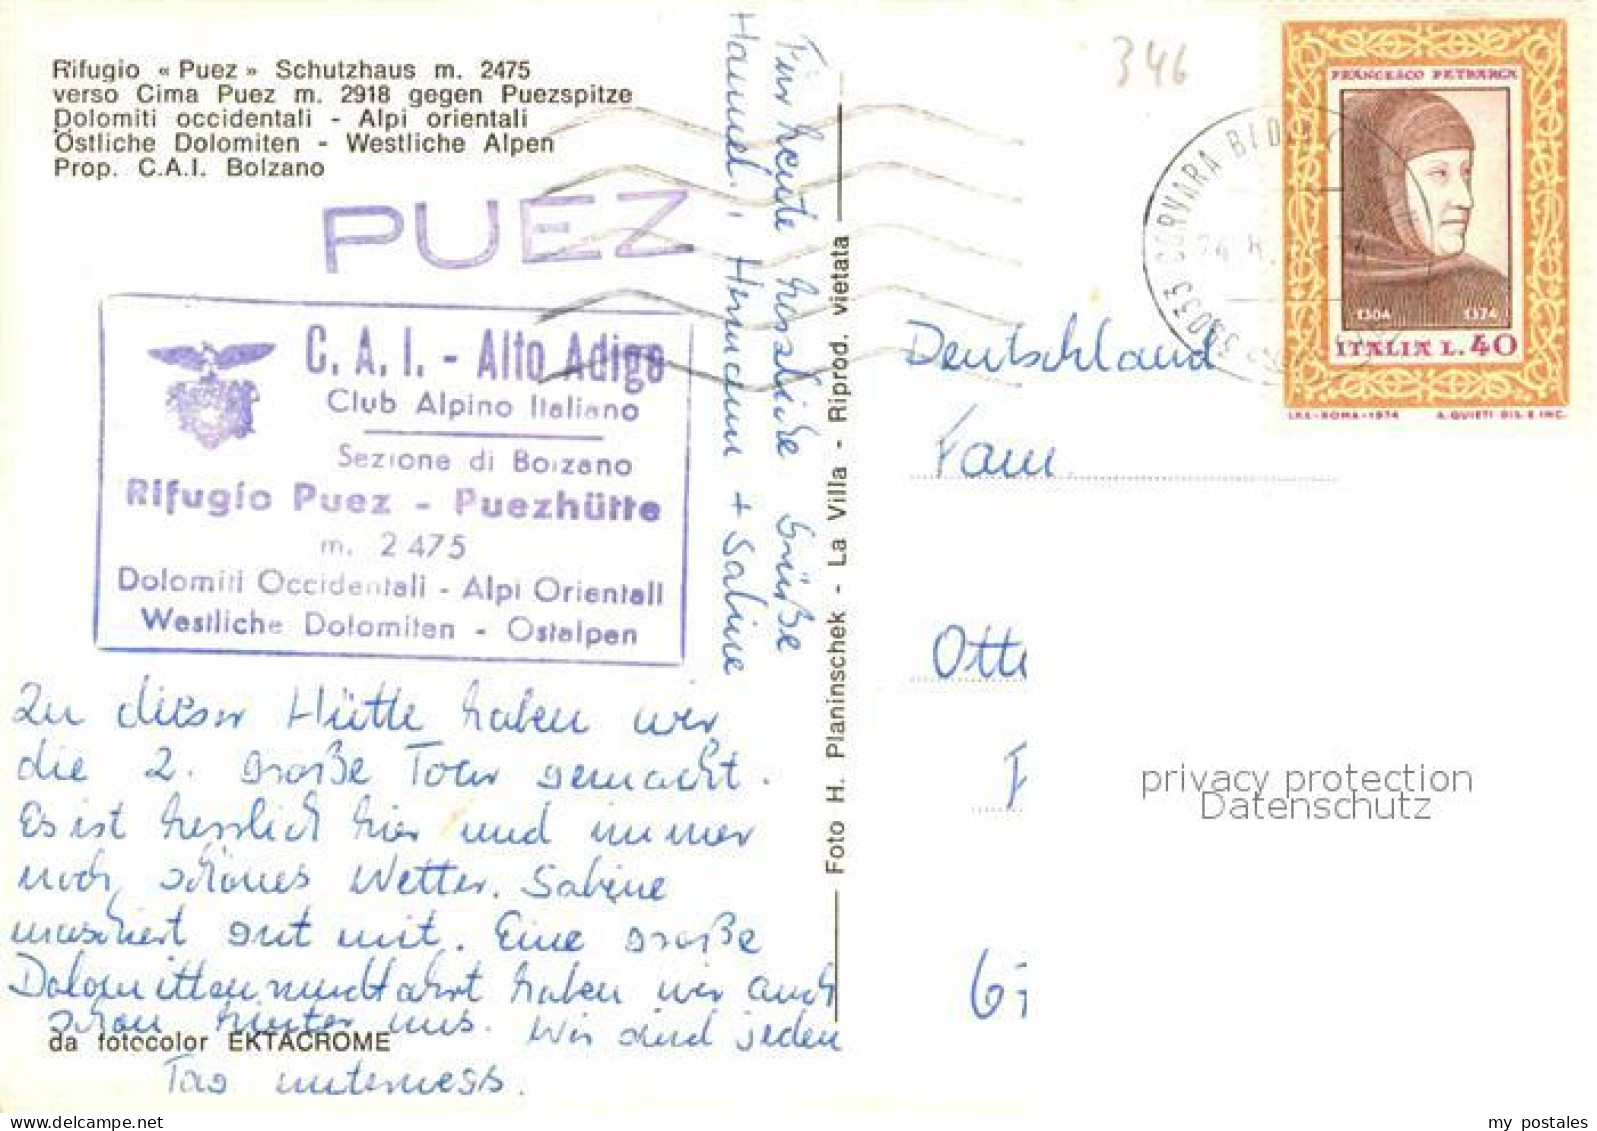 Rifugio « Puez » Schutzhaus m. 2475
verso Cima Puez m. 2918 gegen Puezspitze
Dolomiti occidentali - Alpi orientali
Östliche Dolomiten - Westliche Alpen
Prop. C.A.I. Bolzano
PUEZ
C. A. I. - Alto Adige
Club Alpino Italiano
Sezione di Bolzano
Rifugio Puez - Puezhütte
m. 2475
Dolomiti Occidentali - Alpi Orientali
Westliche Dolomiten - Ostalpen
Zu dieser Hütte haben wir
die 2. große Tour gemacht.
Es ist herrlich hier und immer
noch schönes Wetter. Sabine
maschiert gut mit. Eine große
Dolomittenrundfahrt haben wir auch
schon hinter uns. Wir sind jeden
Tag unterwegs.
da fotocolor EKTACROME
Für heute herzliche Grüße
Hannel., Hermann + Sabine
Foto H. Planinschek - La Villa - Riprod. vietata
346
39033 CORVARA
FRANCESCO PETRARCA
1304 1374
ITALIA L. 40
I.P.S.-ROMA-1974 A. QUIETI DIS. E INC.
Deutschland
Fam.
Otte
67
privacy protection
Datenschutz
my postales